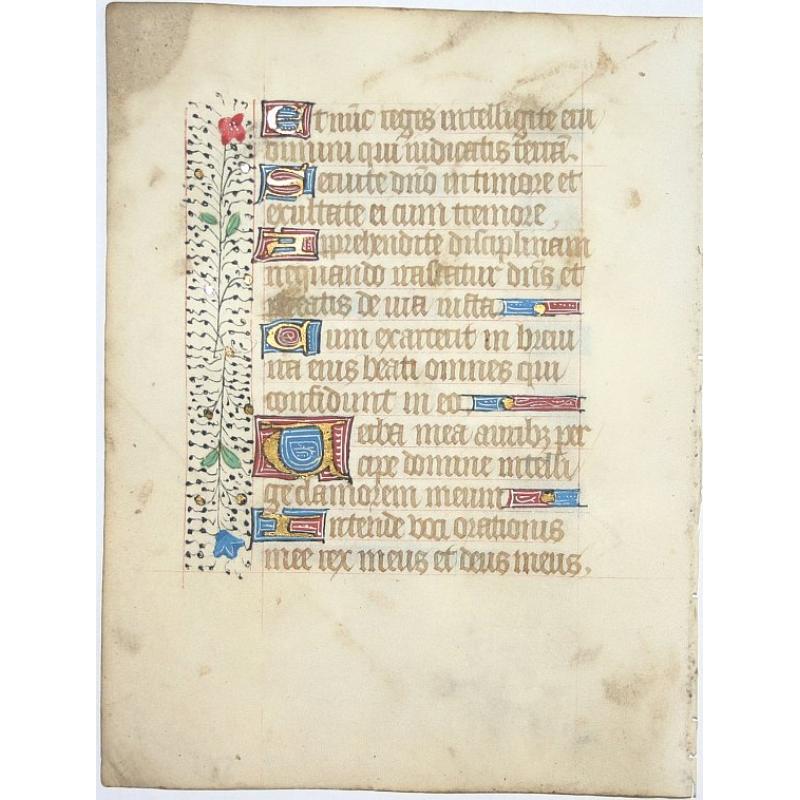 Et nūc reges intelligite eru
dimini qui iudicatis terrā.
Seruite dn̄o in timore et
exultate ei cum tremore,
Apprehendite disciplinam
nequando irascatur dn̄s et
pereatis de uia iusta
Cum exarcerit in breui
ira eius beati omnes qui
confidunt in eo
Uerba mea auribꝫ per
cipe domine intelli
ge clamorem meum
Intende uoci orationis
mee rex meus et deus meus.